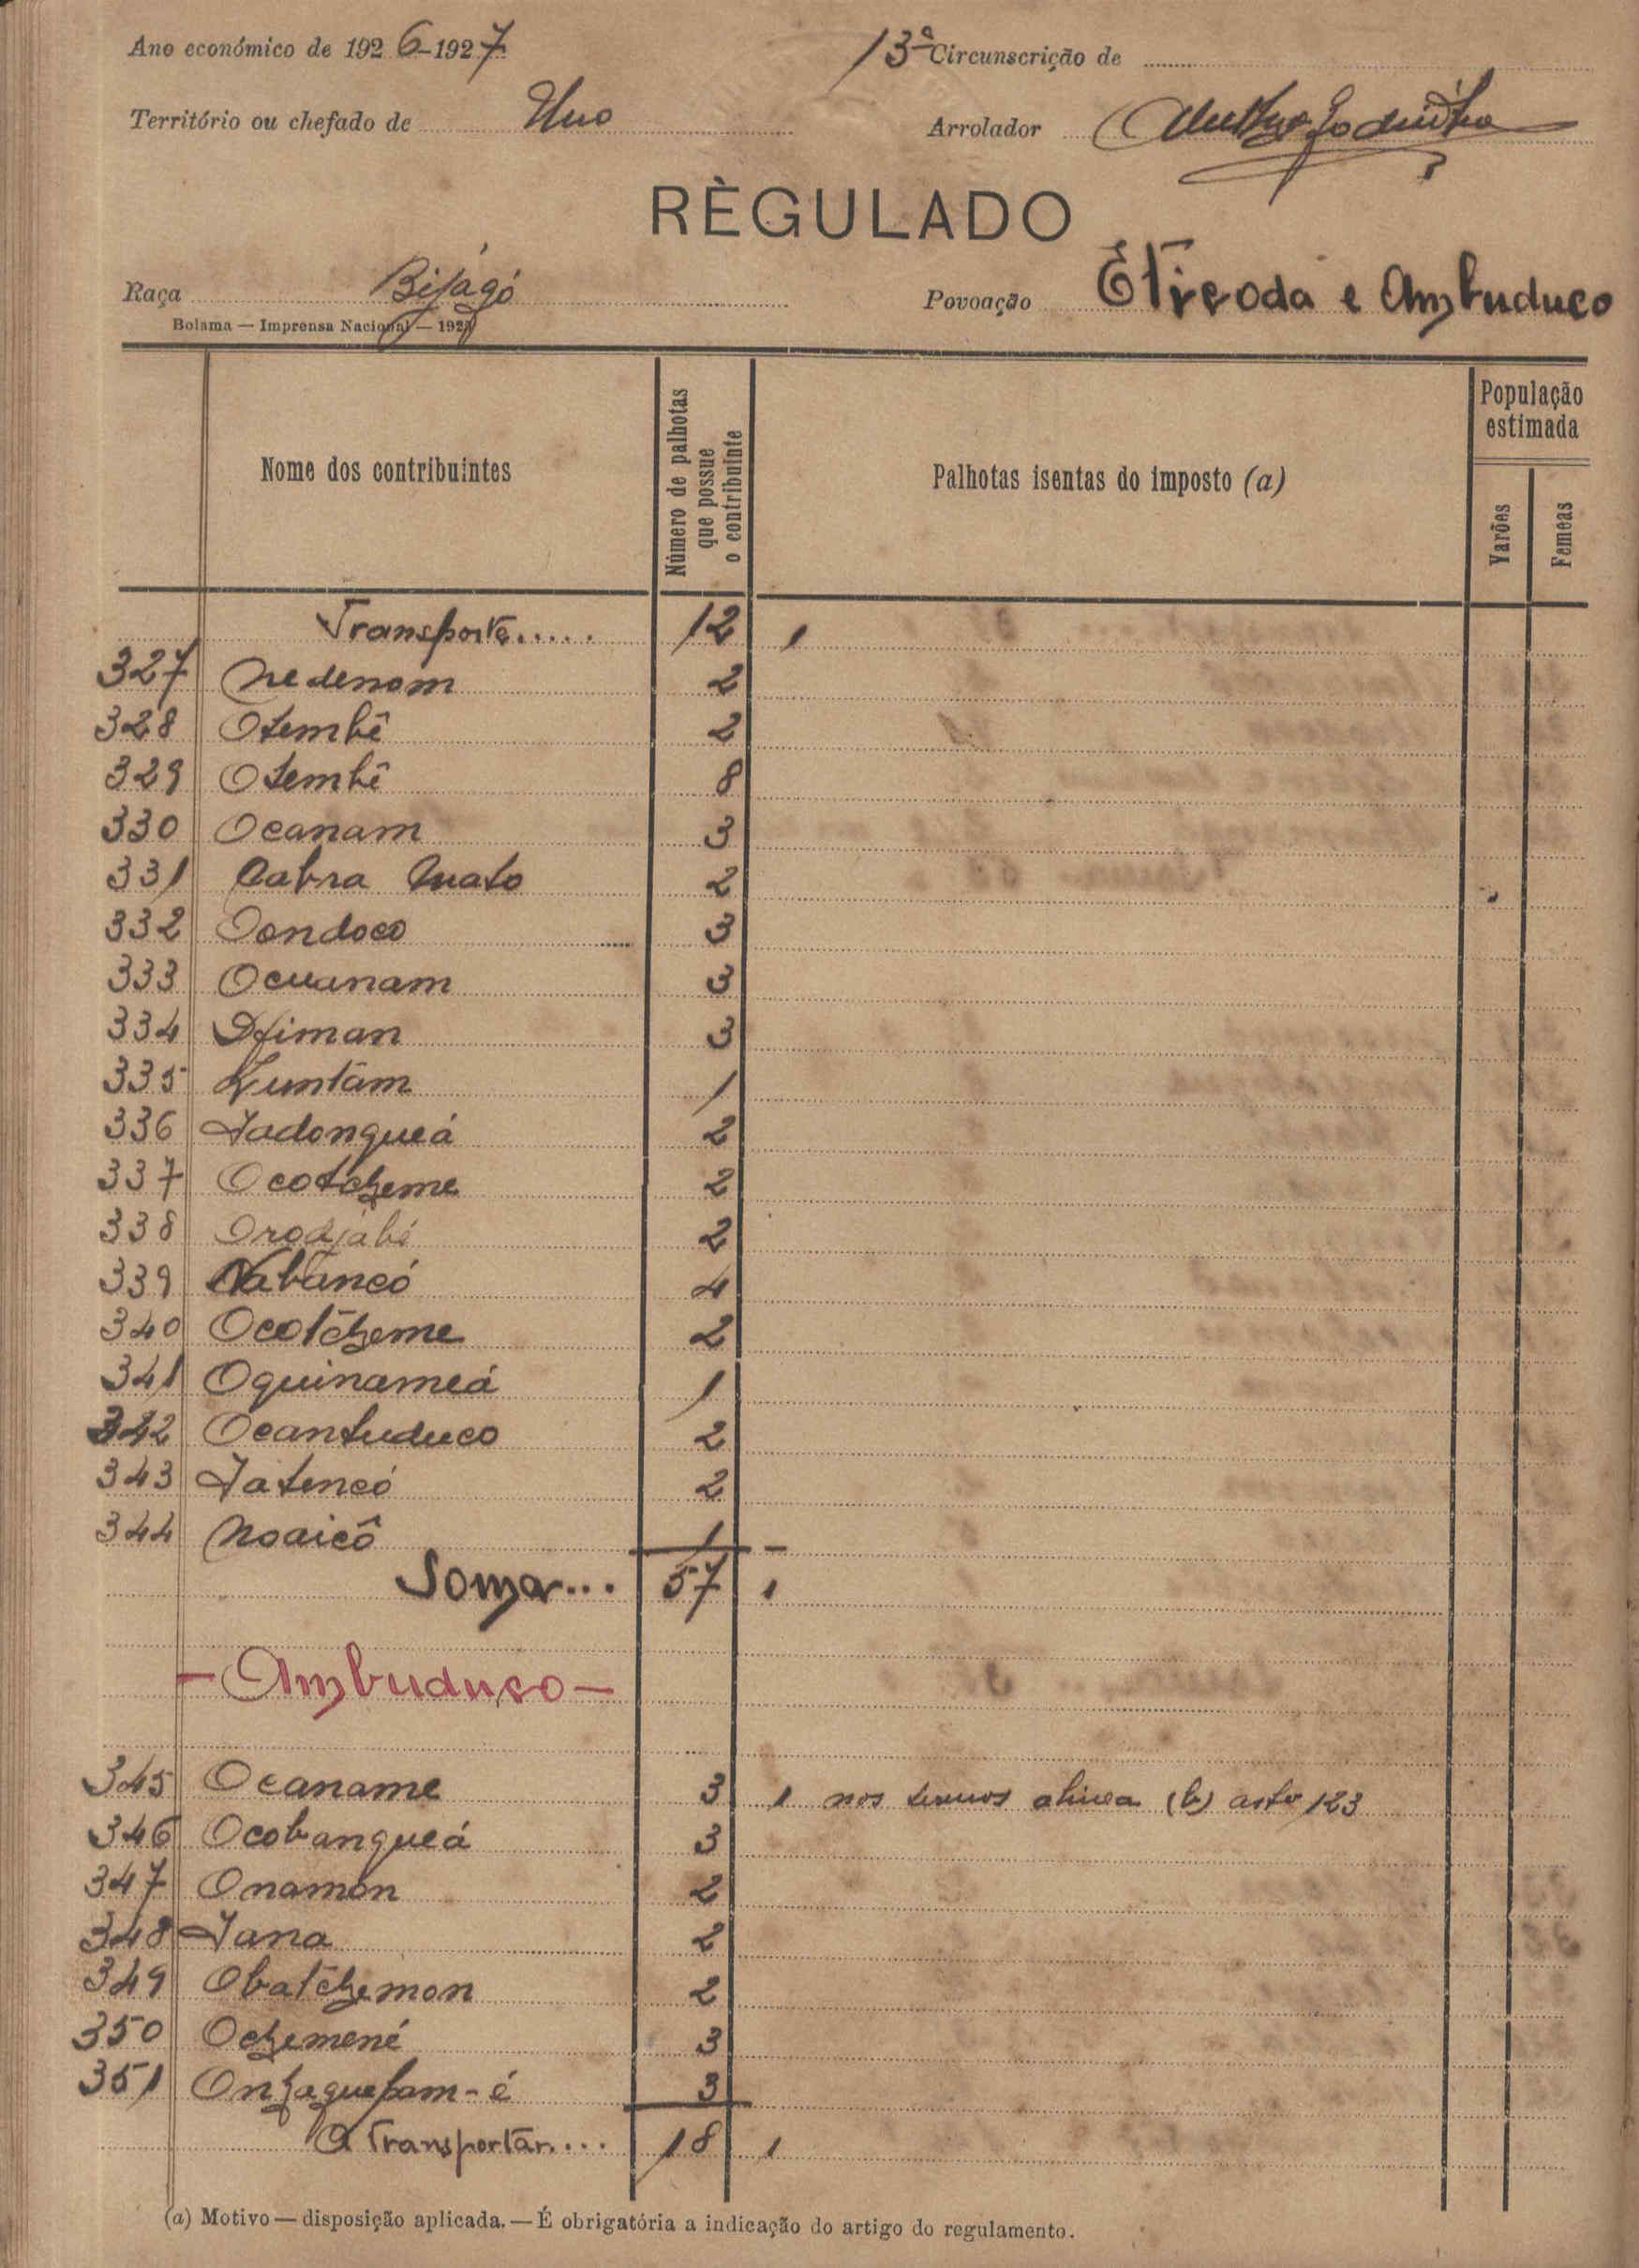 Ano económico de 1926-1927
13ª Circunscrição de
Território ou chefado de Uno
Arrolador
RÈGULADO
Raça Bijagó
Povoação Éticoda e Ambuduco
Bolama — Imprensa Nacional — 192
Nome dos contribuintes
Número de palhotas que possue o contribuinte
Palhotas isentas do imposto (a)
População estimada
Varões
Femeas
Transporte..... 12 1
327 Nedenom 2
328 Otembê 2
329 Otembê 8
330 Ocanam 3
331 Cabra Mato 2
332 Dondoco 3
333 Ocuanam 3
334 3
335 Zuntam 1
336 Jadongueá 2
337 Ocotcheme 2
338 Orodjabé 2
339 Nabancó 4
340 Ocotcheme 2
341 Oquinameá 1
342 Ocantuduco 2
343 Jatencó 2
344 Noaicô 1 –
Soma... 57 1
– Ambuduco –
345 Ocaname 3 1 nos termos alinea (b) artº 123
346 Ocobangueá 3
347 Onamon 2
348 Jana 2
349 Obatchemon 2
350 Ochemené 3
351 3
A Transportar... 18 1
(a) Motivo — disposição aplicada. — É obrigatória a indicação do artigo do regulamento.